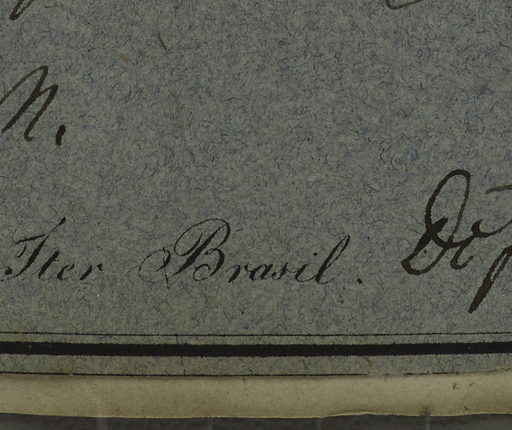 n.
Iter Brasil.